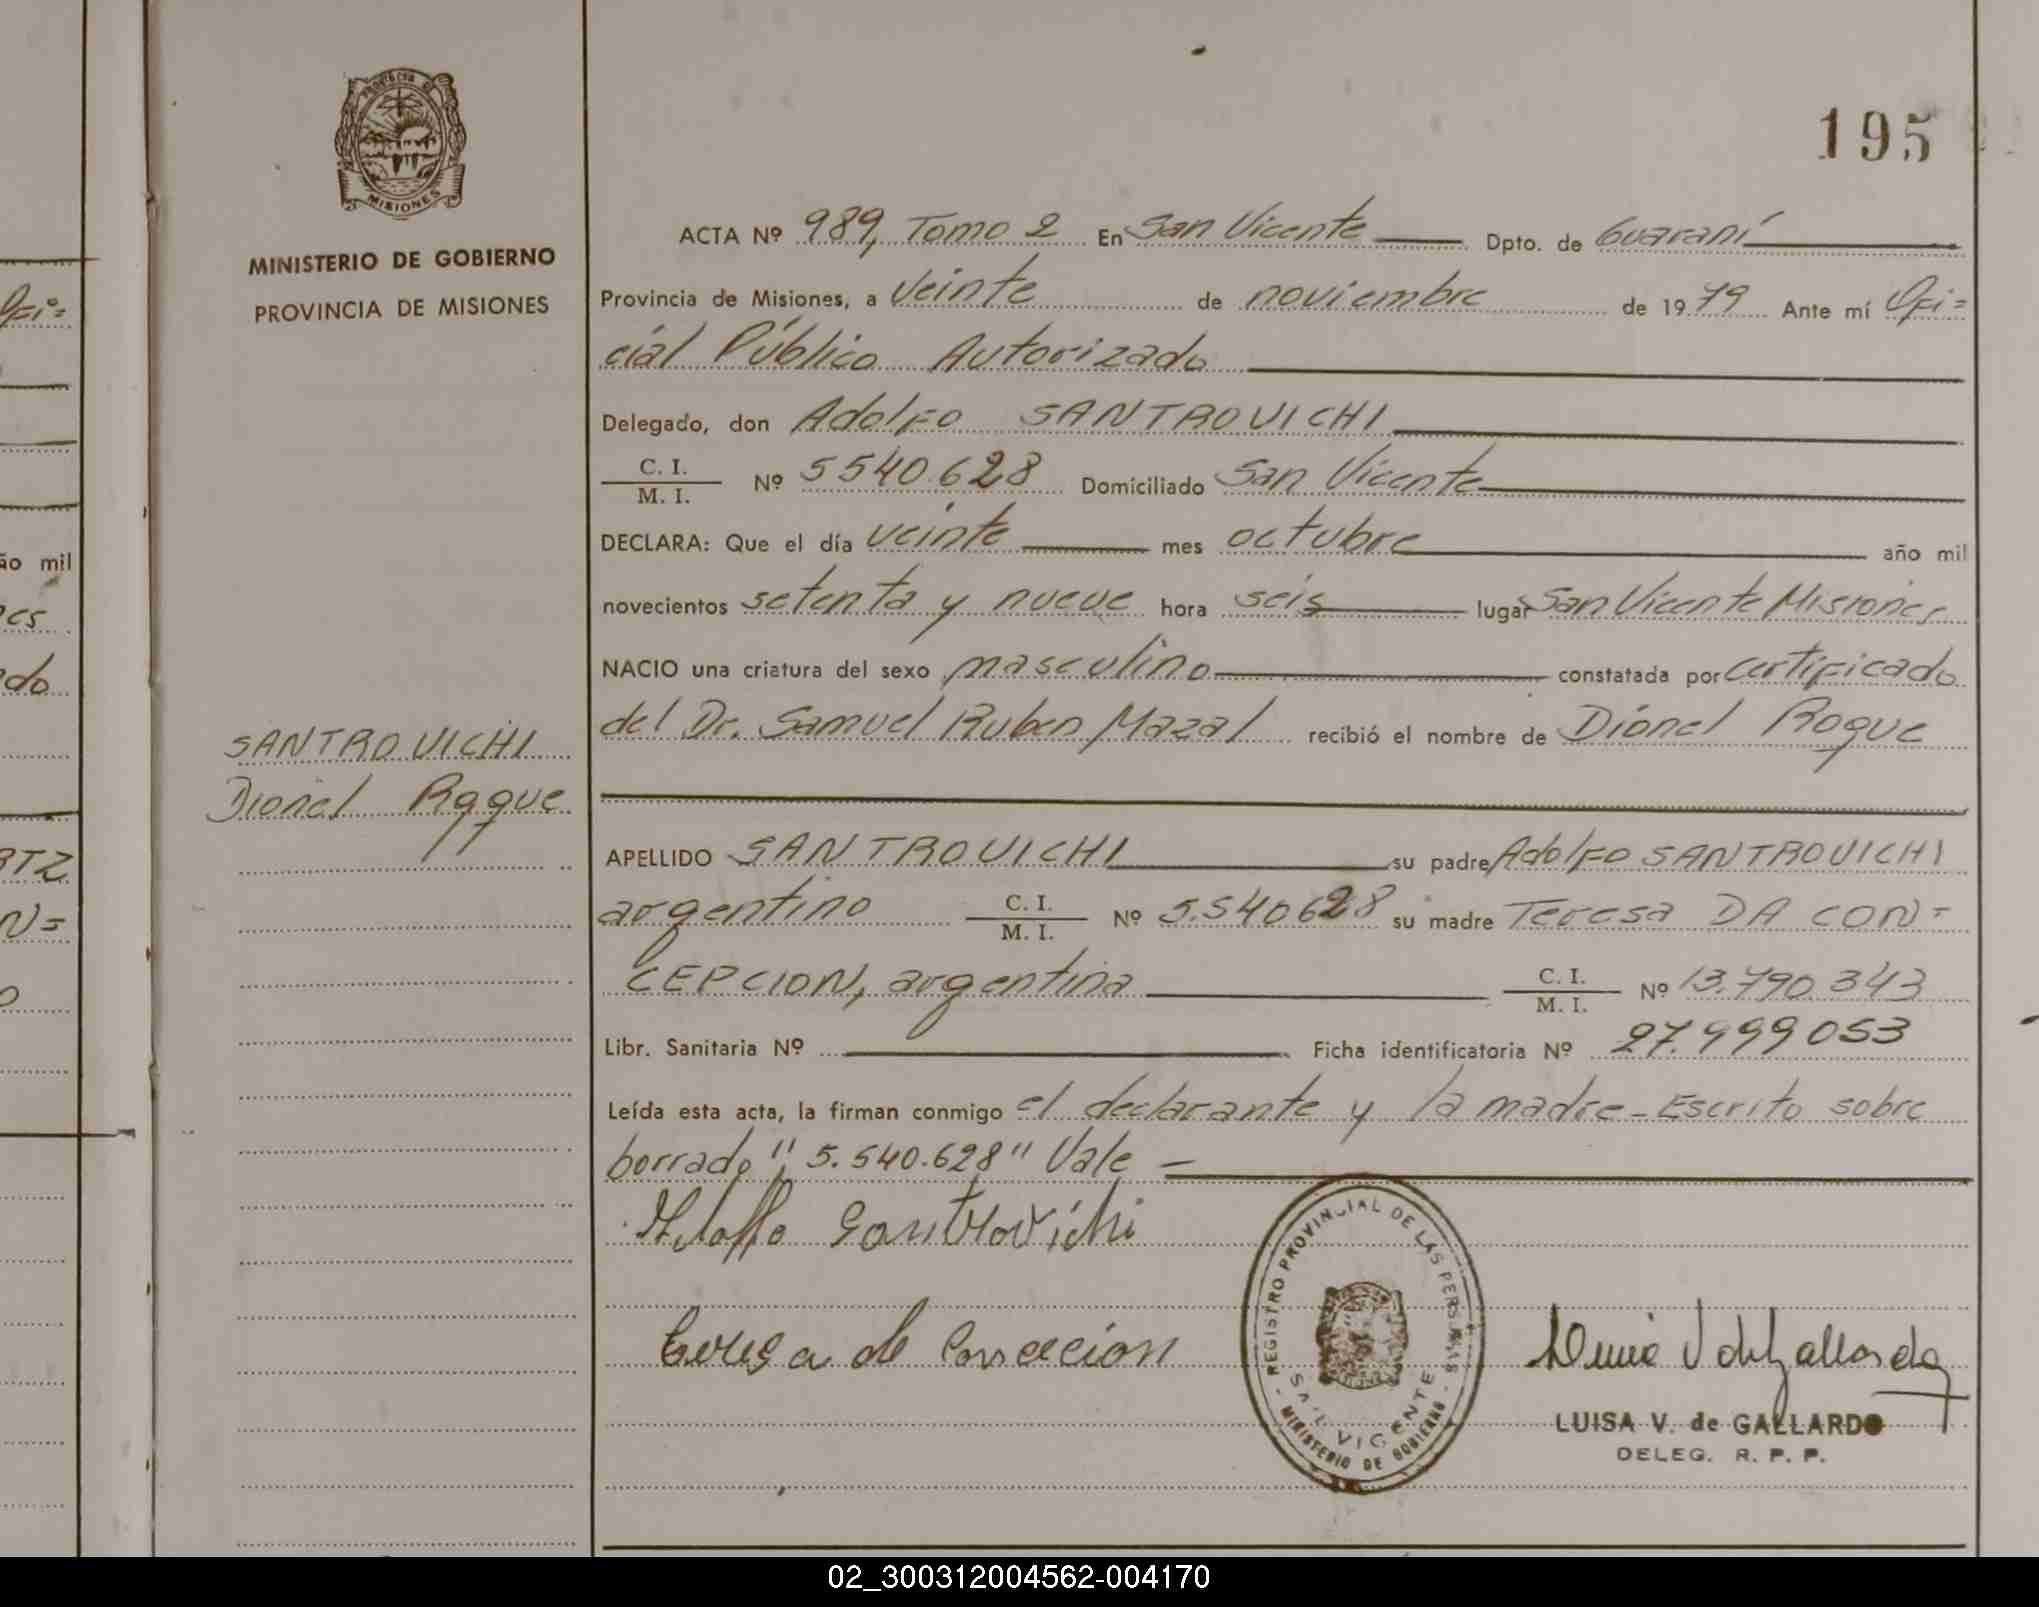 PROVINCIA DE
MISIONES
MINISTERIO DE GOBIERNO
PROVINCIA DE MISIONES
195
ACTA Nº 989, Tomo 2 En San Vicente Dpto. de Guaraní
Provincia de Misiones, a veinte de noviembre de 1979 Ante mí Ofi=
cial Público Autorizado
Delegado, don Adolfo SANTROVICHI
C. I.
M. I. Nº 5540.628 Domiciliado San Vicente
DECLARA: Que el día veinte mes octubre año mil
novecientos setenta y nueve hora seis lugar San Vicente Misiones
NACIO una criatura del sexo masculino constatada por certificado
del Dr. Samuel Ruben Mazal recibió el nombre de Dionel Roque
SANTROVICHI
Dionel Roque
APELLIDO SANTROVICHI su padre Adolfo SANTROVICHI
argentino C. I.
M. I. Nº 5.540628 su madre Teresa DA CON=
CEPCION, argentina C. I.
M. I. Nº 13.790.343
Libr. Sanitaria Nº Ficha identificatoria Nº 27.999053
Leída esta acta, la firman conmigo el declarante y la madre - Escrito sobre
borrado "5.540.628" Vale -
Adolfo Santrovichi
Teresa de Concecion
REGISTRO PROVINCIAL DE LAS PERSONAS
SAN VICENTE
MINISTERIO DE GOBIERNO
LUISA V. de GALLARDO
DELEG. R. P. P.
Ofi=
año mil
do
RTZ
N=
02_300312004562-004170